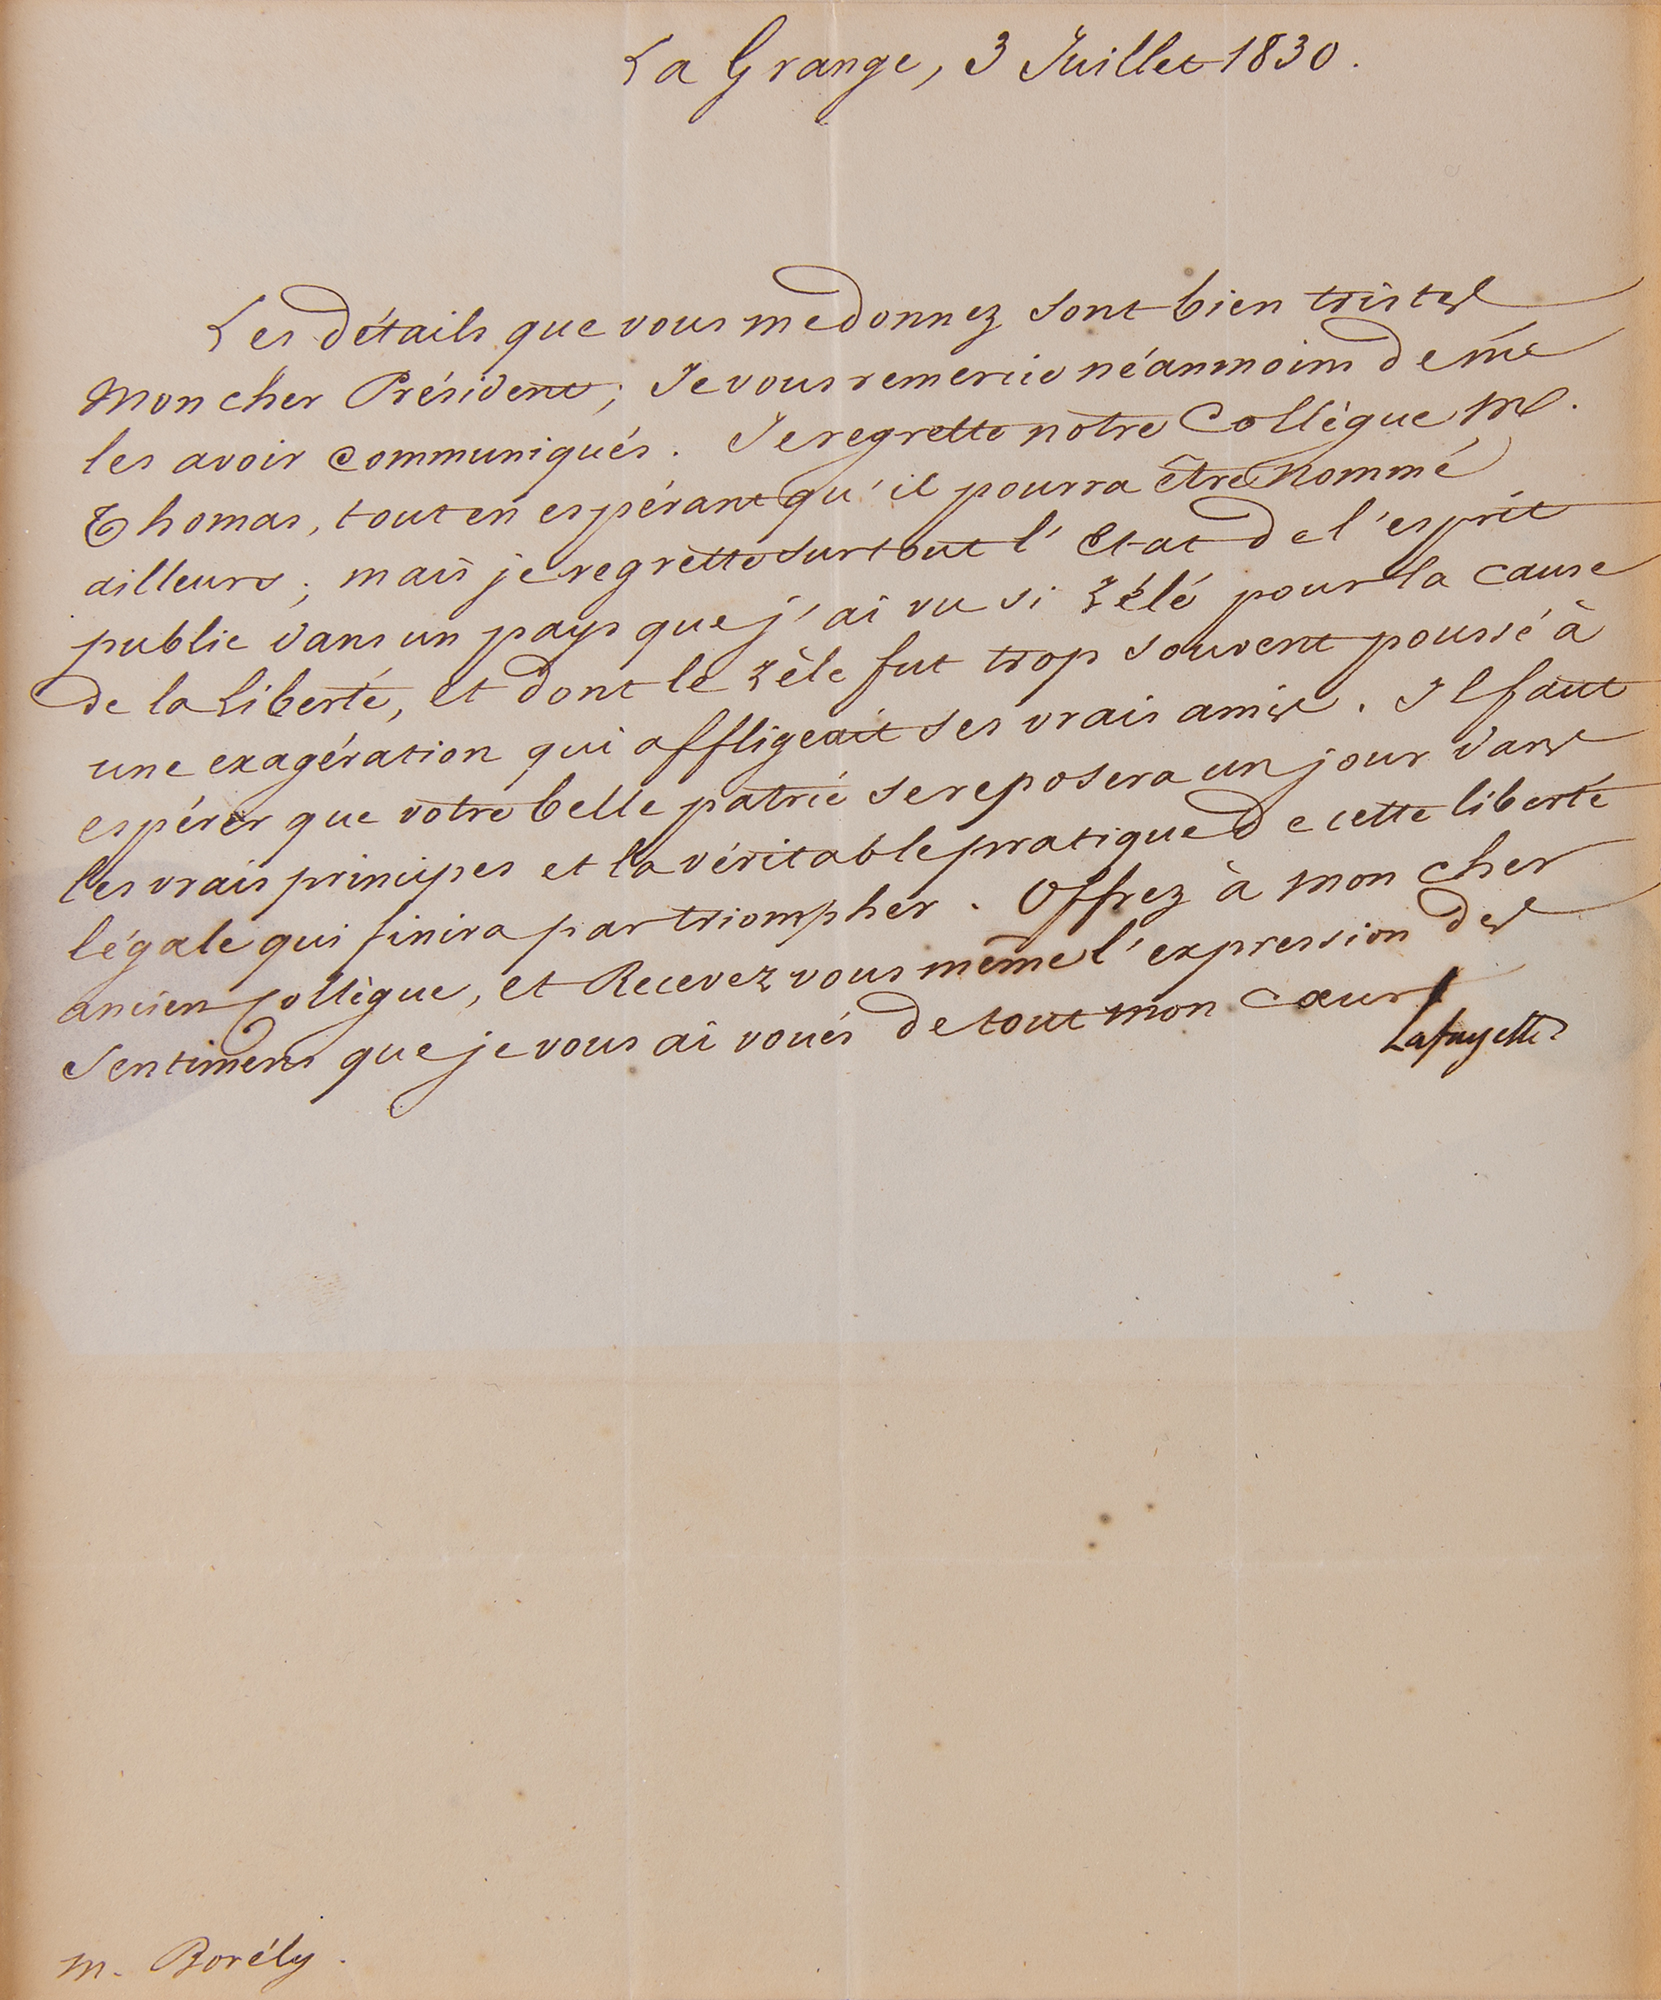 La Grange, 3 Juillet 1830.
Les détails que vous me donnez sont bien tristes
Mon cher Président; Je vous remercie néanmoins de me
les avoir communiqués. Je regrette notre Collègue M.
Thomas, tout en espérant qu'il pourra être nommé
ailleurs; mais je regrette surtout l'Etat de l'esprit
public dans un pays que j'ai vu si zélé pour la cause
de la Liberté, et dont le zèle fut trop souvent poussé à
une exagération qui affligeait ses vrais amis. Il faut
espérer que votre belle patrie se reposera un jour dans
les vrais principes et la véritable pratique de cette liberté
légale qui finira par triompher. Offrez à mon cher
ancien Collègue, et Recevez vous même l'expression des
Sentimens que je vous ai voués de tout mon cœur
Lafayette
M. Borély.